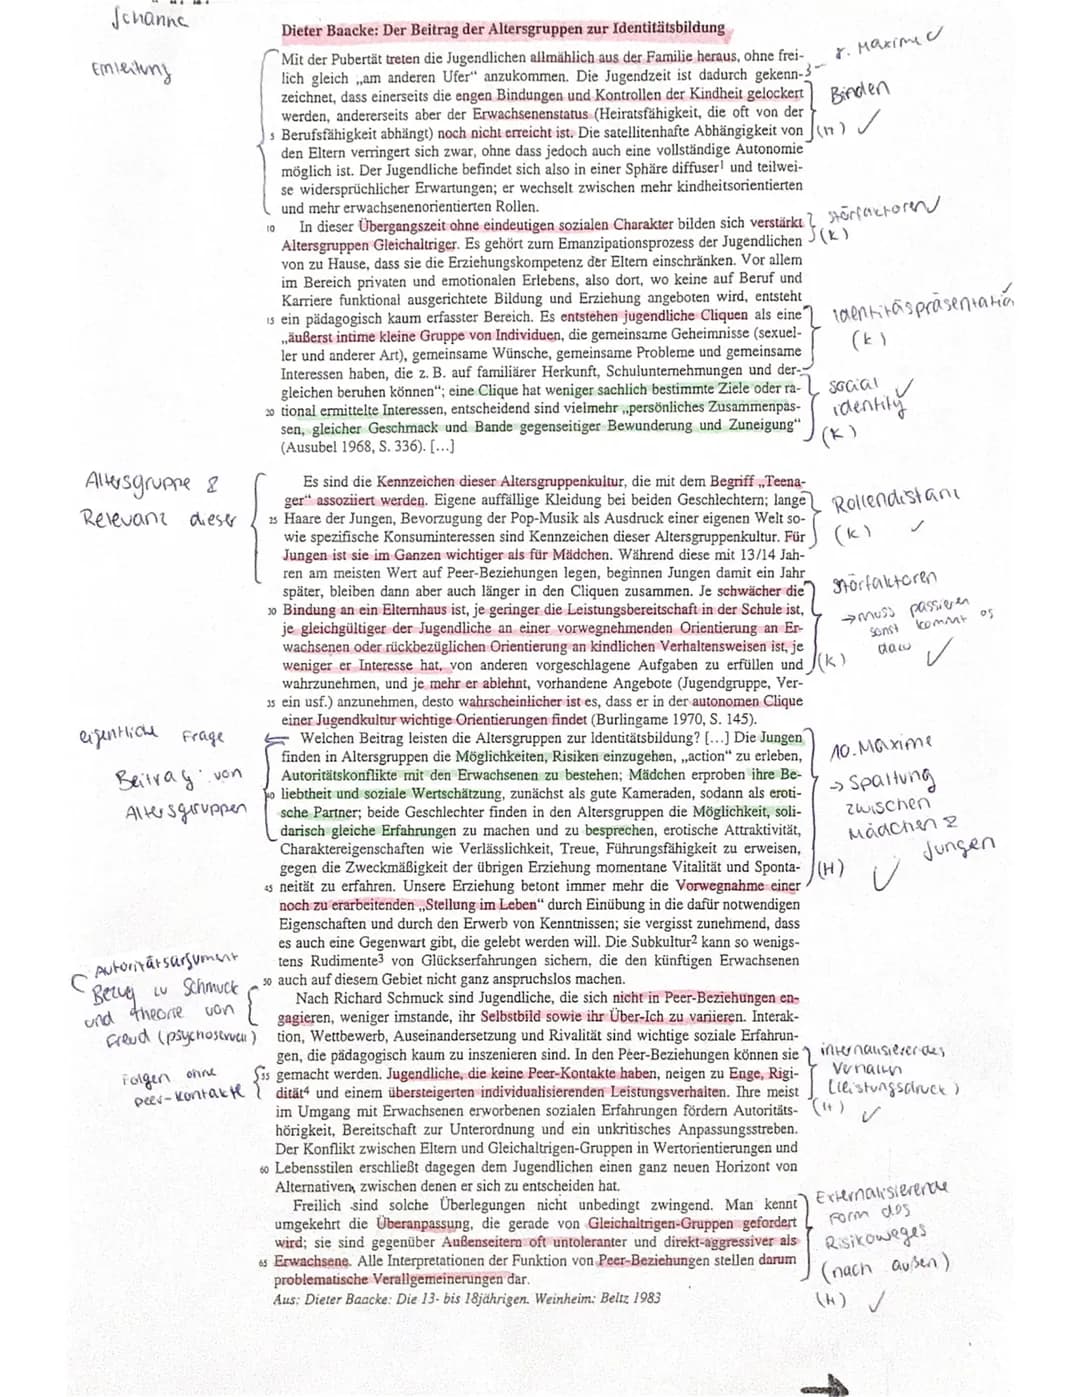 Johanne
Dieter Baacke: Der Beitrag der Altersgruppen zur Identitätsbildung
Einleitung
Mit der Pubertät treten die Jugendlichen allmählich aus der Familie heraus, ohne frei-
lich gleich „am anderen Ufer“ anzukommen. Die Jugendzeit ist dadurch gekenn-
zeichnet, dass einerseits die engen Bindungen und Kontrollen der Kindheit gelockert
werden, andererseits aber der Erwachsenenstatus (Heiratsfähigkeit, die oft von der
5 Berufsfähigkeit abhängt) noch nicht erreicht ist. Die satellitenhafte Abhängigkeit von
den Eltern verringert sich zwar, ohne dass jedoch auch eine vollständige Autonomie
möglich ist. Der Jugendliche befindet sich also in einer Sphäre diffuser1 und teilwei-
se widersprüchlicher Erwartungen; er wechselt zwischen mehr kindheitsorientierten
und mehr erwachsenenorientierten Rollen.
8. Maxime
Binden
(H) ✓
10 In dieser Übergangszeit ohne eindeutigen sozialen Charakter bilden sich verstärkt
Altersgruppen Gleichaltriger. Es gehört zum Emanzipationsprozess der Jugendlichen
von zu Hause, dass sie die Erziehungskompetenz der Eltern einschränken. Vor allem
im Bereich privaten und emotionalen Erlebens, also dort, wo keine auf Beruf und
Karriere funktional ausgerichtete Bildung und Erziehung angeboten wird, entsteht
15 ein pädagogisch kaum erfasster Bereich. Es entstehen jugendliche Cliquen als eine
„äußerst intime kleine Gruppe von Individuen, die gemeinsame Geheimnisse (sexuel-
ler und anderer Art), gemeinsame Wünsche, gemeinsame Probleme und gemeinsame
Interessen haben, die z. B. auf familiärer Herkunft, Schulunternehmungen und der-
gleichen beruhen können“; eine Clique hat weniger sachlich bestimmte Ziele oder ra-
20 tional ermittelte Interessen, entscheidend sind vielmehr „persönliches Zusammenpas-
sen, gleicher Geschmack und Bande gegenseitiger Bewunderung und Zuneigung“
(Ausubel 1968, S. 336). [...]
Störfaktoren ✓
(K)
Identitäspräsentation
(K)
social ✓
identity
(K)
Altersgruppe &
Relevanz dieser
Es sind die Kennzeichen dieser Altersgruppenkultur, die mit dem Begriff „Teena-
ger“ assoziiert werden. Eigene auffällige Kleidung bei beiden Geschlechtern; lange
25 Haare der Jungen, Bevorzugung der Pop-Musik als Ausdruck einer eigenen Welt so-
wie spezifische Konsuminteressen sind Kennzeichen dieser Altersgruppenkultur. Für
Jungen ist sie im Ganzen wichtiger als für Mädchen. Während diese mit 13/14 Jah-
ren am meisten Wert auf Peer-Beziehungen legen, beginnen Jungen damit ein Jahr
später, bleiben dann aber auch länger in den Cliquen zusammen. Je schwächer die
30 Bindung an ein Elternhaus ist, je geringer die Leistungsbereitschaft in der Schule ist,
je gleichgültiger der Jugendliche an einer vorwegnehmenden Orientierung an Er-
wachsenen oder rückbezüglichen Orientierung an kindlichen Verhaltensweisen ist, je
weniger er Interesse hat, von anderen vorgeschlagene Aufgaben zu erfüllen und
wahrzunehmen, und je mehr er ablehnt, vorhandene Angebote (Jugendgruppe, Ver-
35 ein usf.) anzunehmen, desto wahrscheinlicher ist es, dass er in der autonomen Clique
einer Jugendkultur wichtige Orientierungen findet (Burlingame 1970, S. 145).
Rollendistanz
(K) ✓
Störfaktoren
→ muss passieren
sonst kommt es
dazu ✓
(K)
eigentliche Frage
Beitrag von
Altersgruppen
Welchen Beitrag leisten die Altersgruppen zur Identitätsbildung? [...] Die Jungen
finden in Altersgruppen die Möglichkeiten, Risiken einzugehen, „action“ zu erleben,
Autoritätskonflikte mit den Erwachsenen zu bestehen; Mädchen erproben ihre Be-
40 liebtheit und soziale Wertschätzung, zunächst als gute Kameraden, sodann als eroti-
sche Partner; beide Geschlechter finden in den Altersgruppen die Möglichkeit, soli-
darisch gleiche Erfahrungen zu machen und zu besprechen, erotische Attraktivität,
Charaktereigenschaften wie Verlässlichkeit, Treue, Führungsfähigkeit zu erweisen,
gegen die Zweckmäßigkeit der übrigen Erziehung momentane Vitalität und Sponta-
45 neität zu erfahren. Unsere Erziehung betont immer mehr die Vorwegnahme einer
noch zu erarbeitenden „Stellung im Leben“ durch Einübung in die dafür notwendigen
Eigenschaften und durch den Erwerb von Kenntnissen; sie vergisst zunehmend, dass
es auch eine Gegenwart gibt, die gelebt werden will. Die Subkultur2 kann so wenigs-
tens Rudimente3 von Glückserfahrungen sichern, die den künftigen Erwachsenen
50 auch auf diesem Gebiet nicht ganz anspruchslos machen.
10. Maxime
→ Spaltung
zwischen
Mädchen &
Jungen
(H) ✓
Autoritätsargument
Bezug zu Schmuck
und Theorie von
Freud (psychosexuell)
Folgen ohne
peer-Kontakte
Nach Richard Schmuck sind Jugendliche, die sich nicht in Peer-Beziehungen en-
gagieren, weniger imstande, ihr Selbstbild sowie ihr Über-Ich zu variieren. Interak-
tion, Wettbewerb, Auseinandersetzung und Rivalität sind wichtige soziale Erfahrun-
gen, die pädagogisch kaum zu inszenieren sind. In den Peer-Beziehungen können sie
55 gemacht werden. Jugendliche, die keine Peer-Kontakte haben, neigen zu Enge, Rigi-
dität4 und einem übersteigerten individualisierenden Leistungsverhalten. Ihre meist
im Umgang mit Erwachsenen erworbenen sozialen Erfahrungen fördern Autoritäts-
hörigkeit, Bereitschaft zur Unterordnung und ein unkritisches Anpassungsstreben.
Der Konflikt zwischen Eltern und Gleichaltrigen-Gruppen in Wertorientierungen und
60 Lebensstilen erschließt dagegen dem Jugendlichen einen ganz neuen Horizont von
Alternativen, zwischen denen er sich zu entscheiden hat.
internalisierendes
Verhalten
(Leistungsdruck)
(H) ✓
Freilich sind solche Überlegungen nicht unbedingt zwingend. Man kennt
umgekehrt die Überanpassung, die gerade von Gleichaltrigen-Gruppen gefordert
wird; sie sind gegenüber Außenseitern oft untoleranter und direkt-aggressiver als
65 Erwachsene. Alle Interpretationen der Funktion von Peer-Beziehungen stellen darum
problematische Verallgemeinerungen dar.
Aus: Dieter Baacke: Die 13- bis 18jährigen. Weinheim: Beltz 1983
Externalisierende
Form des
Risikoweges
(nach außen)
(H) ✓
→